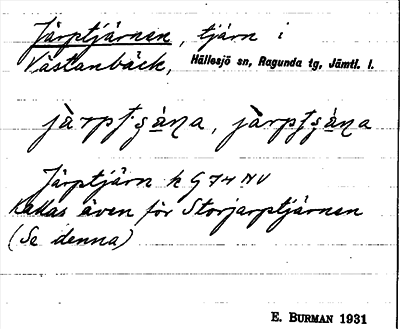 Järptjärnen, tjärn i
Västanbäck, Hällesjö sn, Ragunda tg, Jämtl. l.
Järptjärn k G 74 NV
kallas även för Storjarptjärnen
(Se denna)
E. BURMAN 1931